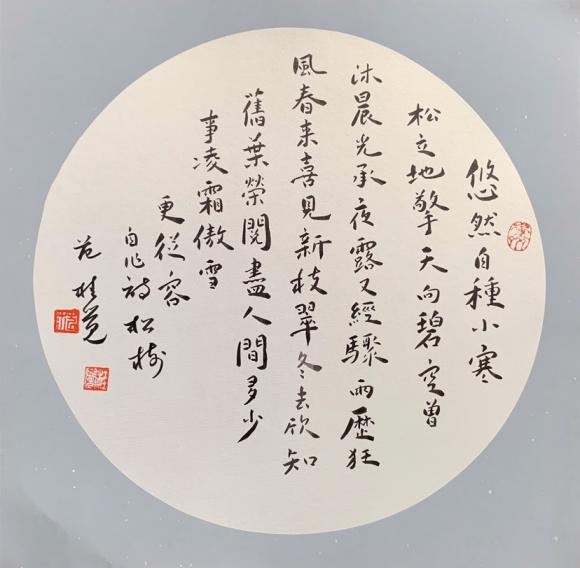 悠然自種小寒
松立地擎天向碧空曾
沐晨光承夜露又經驟雨歷狂
風春来喜見新枝翠冬去欣知
舊葉榮閱盡人間多少
事凌霜傲雪
更從容
自作詩松樹
范桂